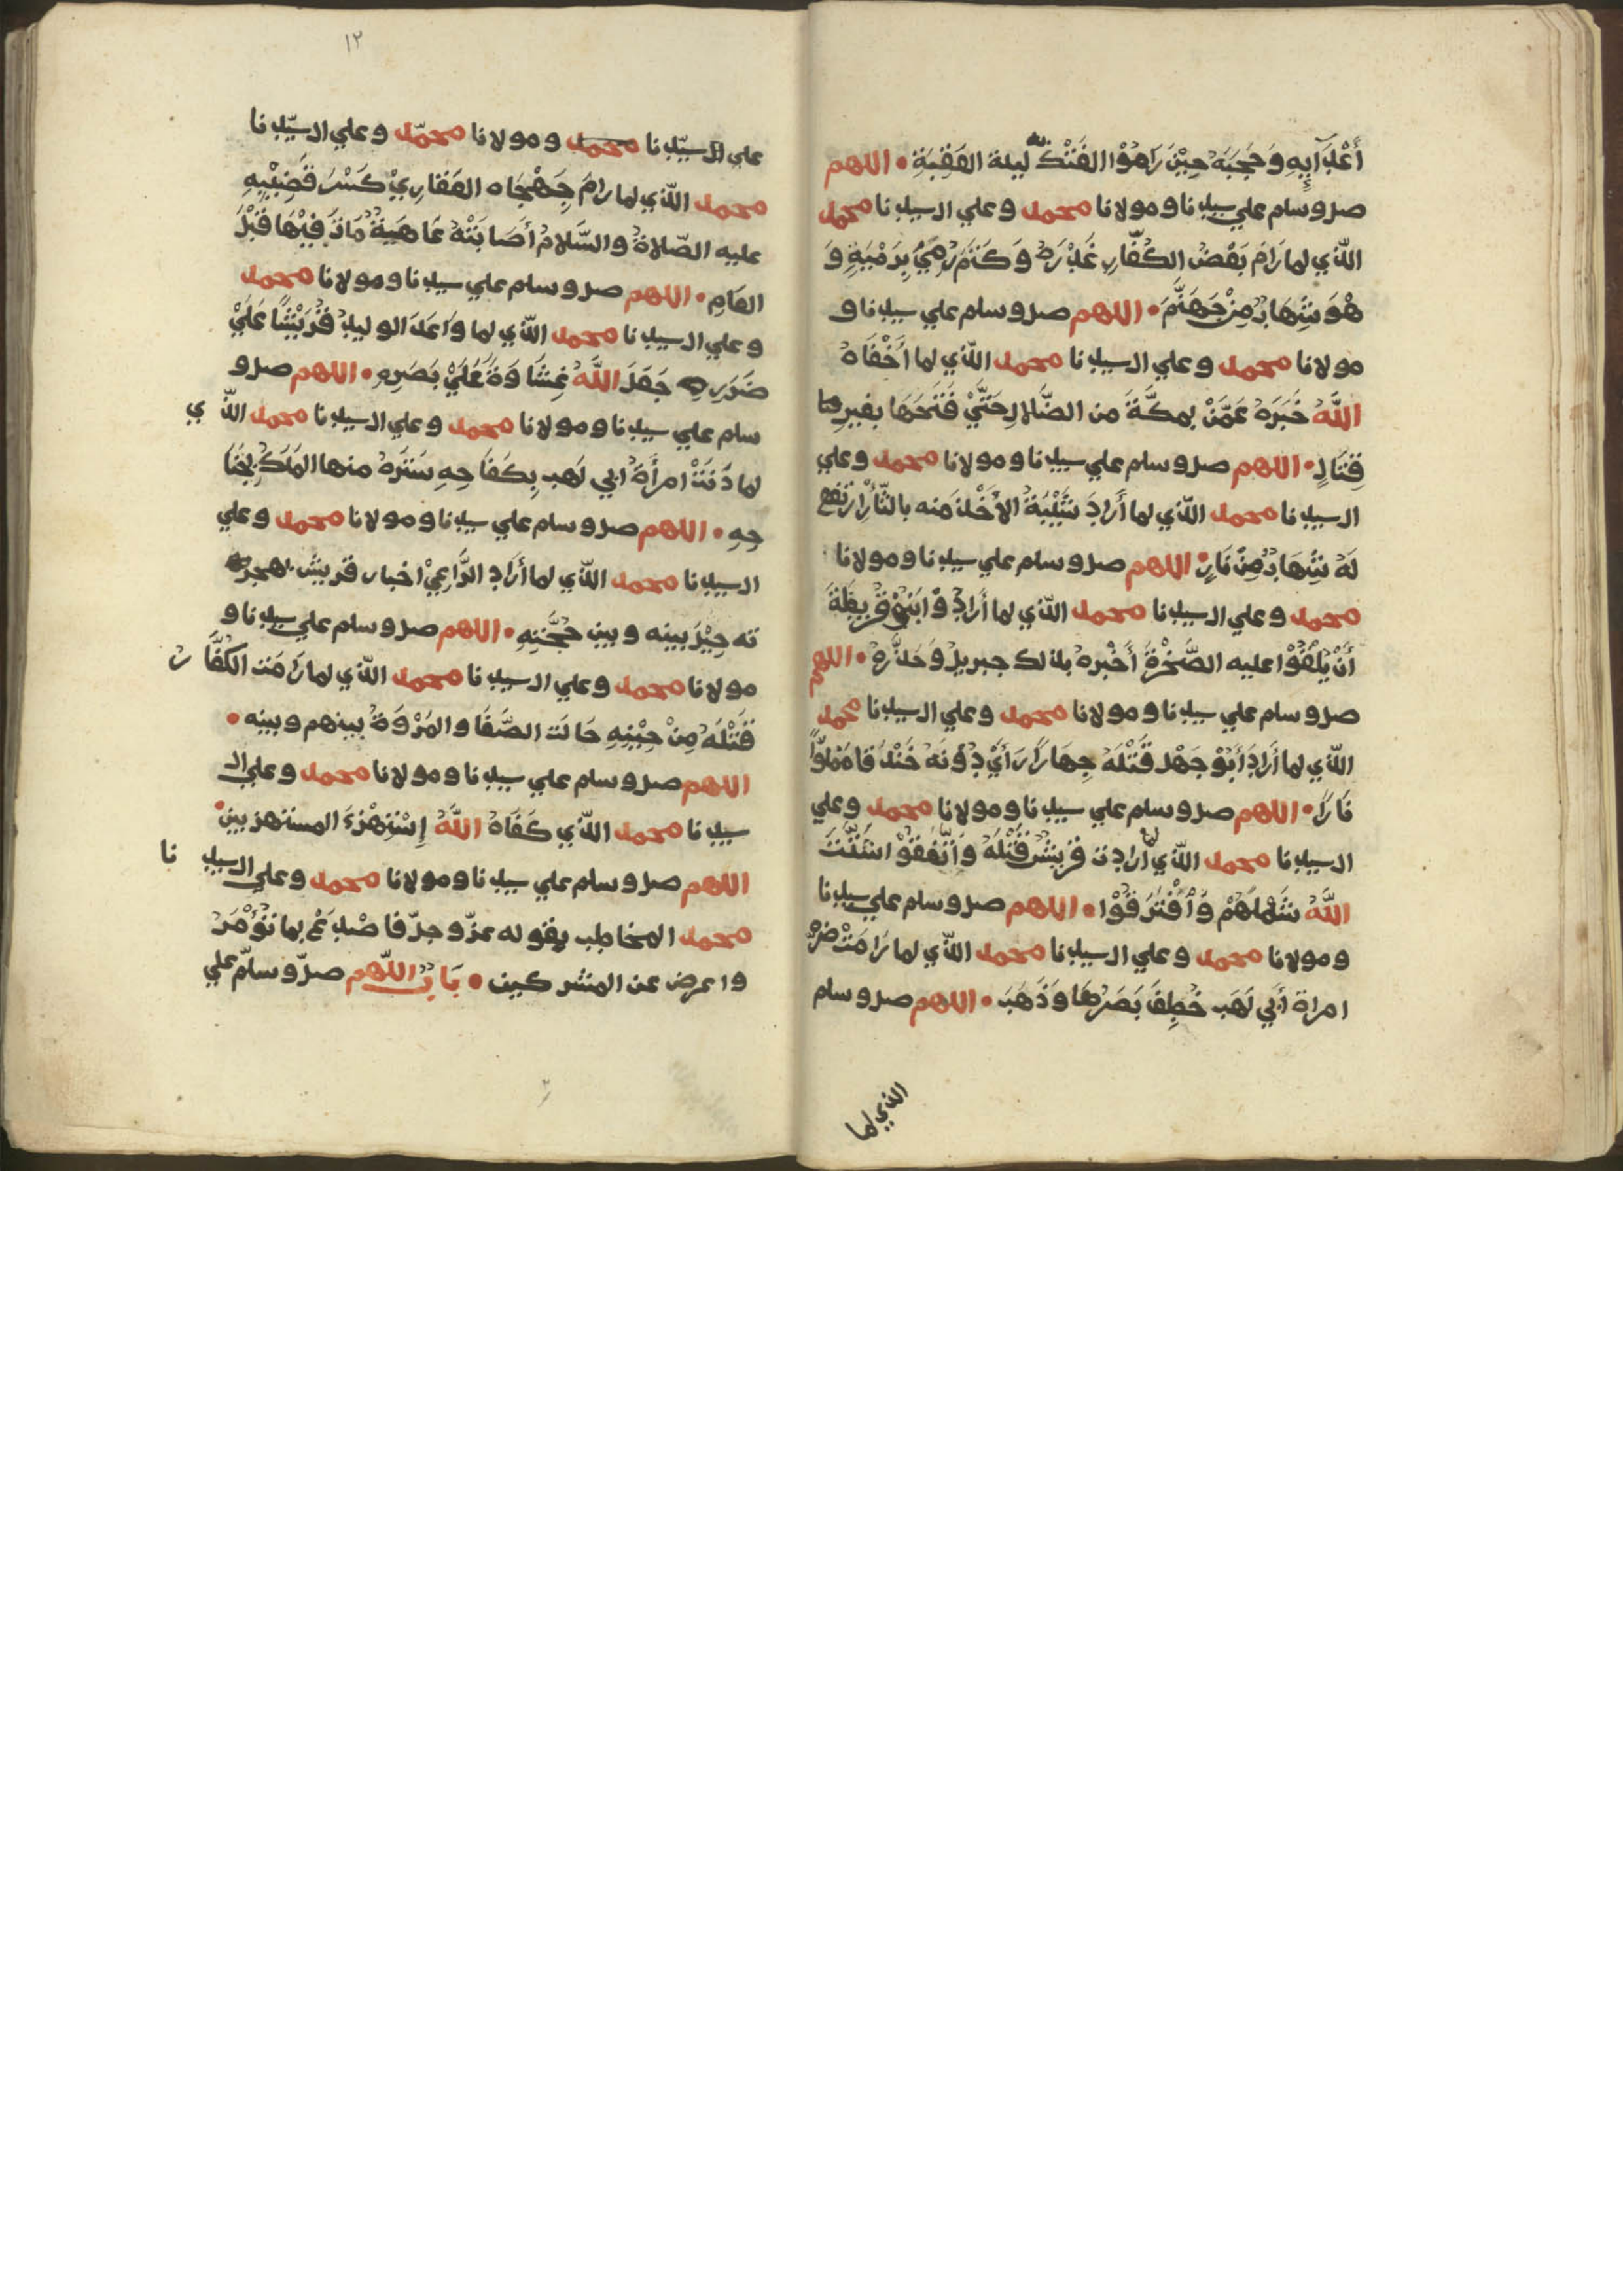 أَعْدَآئِهِ وَحَجَبَهُ حِيْنَ رَاهُوْا الفَتْكَ به ليلة العَقِبَةِ • اللهم
صل وسلم علي سيدنا ومولانا محمد وعلي ال سيدنا محمد
الّذي لما رَامَ بَعْضُ الكُفّارِ غَدْرَهُ وَكَتَمَ رُمِيَ بِرَمْيَةٍ وَ
هُوَ شِهَابٌ مِنْ جَهَنَّمَ • اللهم صل وسلم علي سيدنا و
مولانا محمد وعلي ال سيدنا محمد الّذي لما أَخْفَاهُ
اللَّهُ خَبَرَهُ عَمَّنْ بمكَّةَ من الضَّلالِ حَتَّيْ فَتَحَهَا بغير
قِتَالٍ • اللهم صل وسلم علي سيدنا ومولانا محمد وعلي
ال سيدنا محمد الّذي لما أَرَادَ شَيْبَةُ الأَخْذَ منه بالثّأرِ ارتفع
لَهُ شِهَابٌ مِنْ نَارٍ • اللهم صل وسلم علي سيدنا ومولانا
محمد وعلي ال سيدنا محمد الّذي لما أرادُوْا بَنِيْ قُرَيظَةَ
أَنْ يُلْقُوْا عليه الصَّخْرَةَ أَخْبره بذلك جبريل وَحَذَّرَهُ • اللهم
صل وسلم علي سيدنا ومولانا محمد وعلي ال سيدنا محمد
الّذي لما أَرَادَ أَبُوْ جَهْل قَتْلَهُ جِهَارًا رَأَيْ دُوْنَهُ خَنْدَقًا مَمْلُوًّا
نَارًا • اللهم صل وسلم علي سيدنا ومولانا محمد وعلي
ال سيدنا محمد الّذي لما ارادت قريش قَتْلَهُ وَاتَّفَقُوْا اشَتَّتَ
اللَّهُ شَمْلَهُمْ وَأفْتَرَقُوْا • اللهم صل وسلم علي سيدنا
ومولانا محمد وعلي ال سيدنا محمد الّذي لما رَامَتْ ضَرَّهُ
امراة أَبي لَهَب خُطِفَ بَصَرُهَا وَذَهَبَ • اللهم صل وسلم
الذي لما
١٢
علي ال سيّدنا محمد ومولانا محمّد وعلي ال سيّدنا
محمد الّذي لما رامَ جَهْجَاه الغفاريْ كَسْرَ قَضِيْبِهِ
عليه الصّلاةُ والسَّلامُ أصَابَتْهُ عَاهَيةٌ مَاتَ فِيْهَا قَبْلَ
العَامِ • اللهم صل وسلم علي سيدنا ومولانا محمد
وعلي ال سيدنا محمد الّذي لما وَاعَدَ الوليدُ قُرَيْشًا عَلَيْ
ضَرَرِهِ جَعَلَ اللَّهُ غِشَاوَةً عَلَيْ بَصَرِهِ • اللهم صل و
سلم علي سيدنا ومولانا محمد وعلي ال سيدنا محمد الّذي
لما دَنَتْ امرأَةُ ابي لَهب بِكَفَاحِهِ سَتَرَهُ منها المَلَكُ بِجَنَا
حِهِ • اللهم صل وسلم علي سيدنا ومولانا محمد وعلي
ال سيدنا محمد الّذي لما أرَاد الرَّاعِيْ اخبار قريش بهجرته
ته حِيْلَ بينه وبين حُجَّتِهِ • اللهم صل وسلم علي سيدنا و
مولانا محمد وعلي ال سيدنا محمد الّذي لما رَامَت الكُفَّار
قَتْلَهُ مِنْ حِيْنِهِ حَالَت الصَّفَا والمَرْوَةُ بينهم وبينه •
اللهم صل وسلم علي سيدنا ومولانا محمد وعلي ال
سيدنا محمد الّذي كَفَاهُ اللَّهُ إِسْتِهْزءَ المستهزيين •
اللهم صل وسلم علي سيدنا ومولانا محمد وعلي ال سيدنا
محمد المخاطب بقوله عزّ وجلّ فاصْدَعْ بما تُؤْمَرُ
واعرض عن المشركين • بَابٌ اللّهم صلّ وسلّم علي